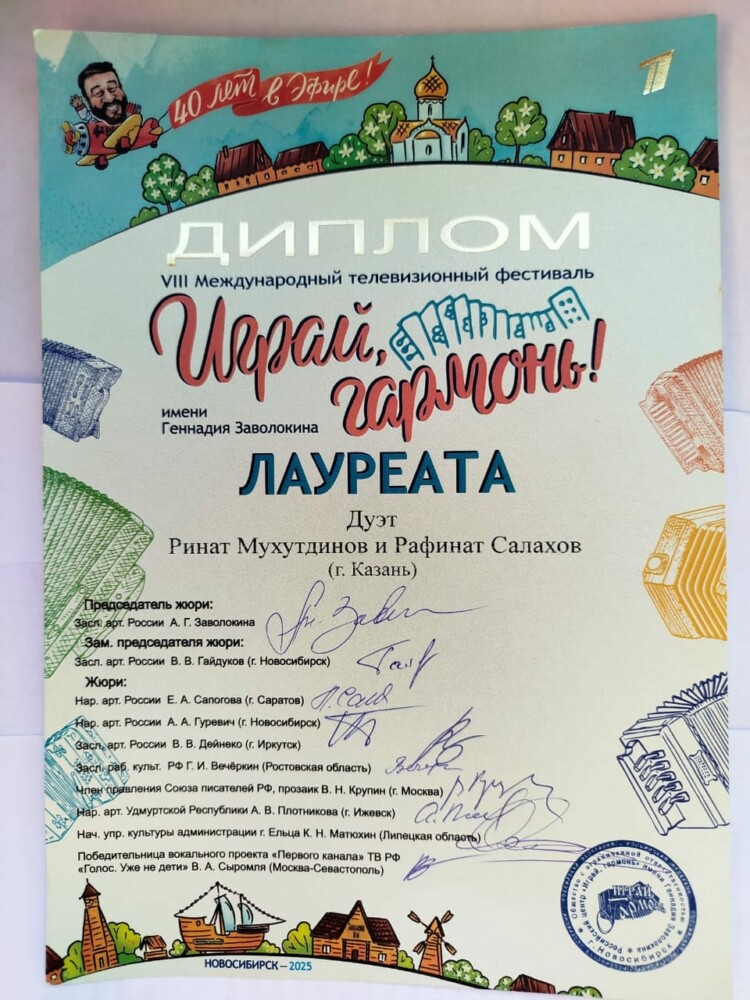 40 лет в Эфире!
ДИПЛОМ
VIII Международный телевизионный фестиваль
Играй,
гармонь!
имени
Геннадия Заволокина
ЛАУРЕАТА
Дуэт
Ринат Мухутдинов и Рафинат Салахов
(г. Казань)
Председатель жюри:
Засл. арт. России А. Г. Заволокина
Зам. председателя жюри:
Засл. арт. России В. В. Гайдуков (г. Новосибирск)
Жюри:
Нар. арт. России Е. А. Сапогова (г. Саратов)
Нар. арт. России А. А. Гуревич (г. Новосибирск)
Засл. арт. России В. В. Дейнеко (г. Иркутск)
Засл. раб. культ. РФ Г. И. Вечёркин (Ростовская область)
Член правления Союза писателей РФ, прозаик В. Н. Крупин (г. Москва)
Нар. арт. Удмуртской Республики А. В. Плотникова (г. Ижевск)
Нач. упр. культуры администрации г. Ельца К. Н. Матюхин (Липецкая область)
Победительница вокального проекта «Первого канала» ТВ РФ
«Голос. Уже не дети» В. А. Сыромля (Москва-Севастополь)
Общество с ограниченной ответственностью
Российский центр «Играй, гармонь» имени Геннадия Заволокина
г. Новосибирск
ИГРАЙ
ГАРМОНЬ
НОВОСИБИРСК – 2025